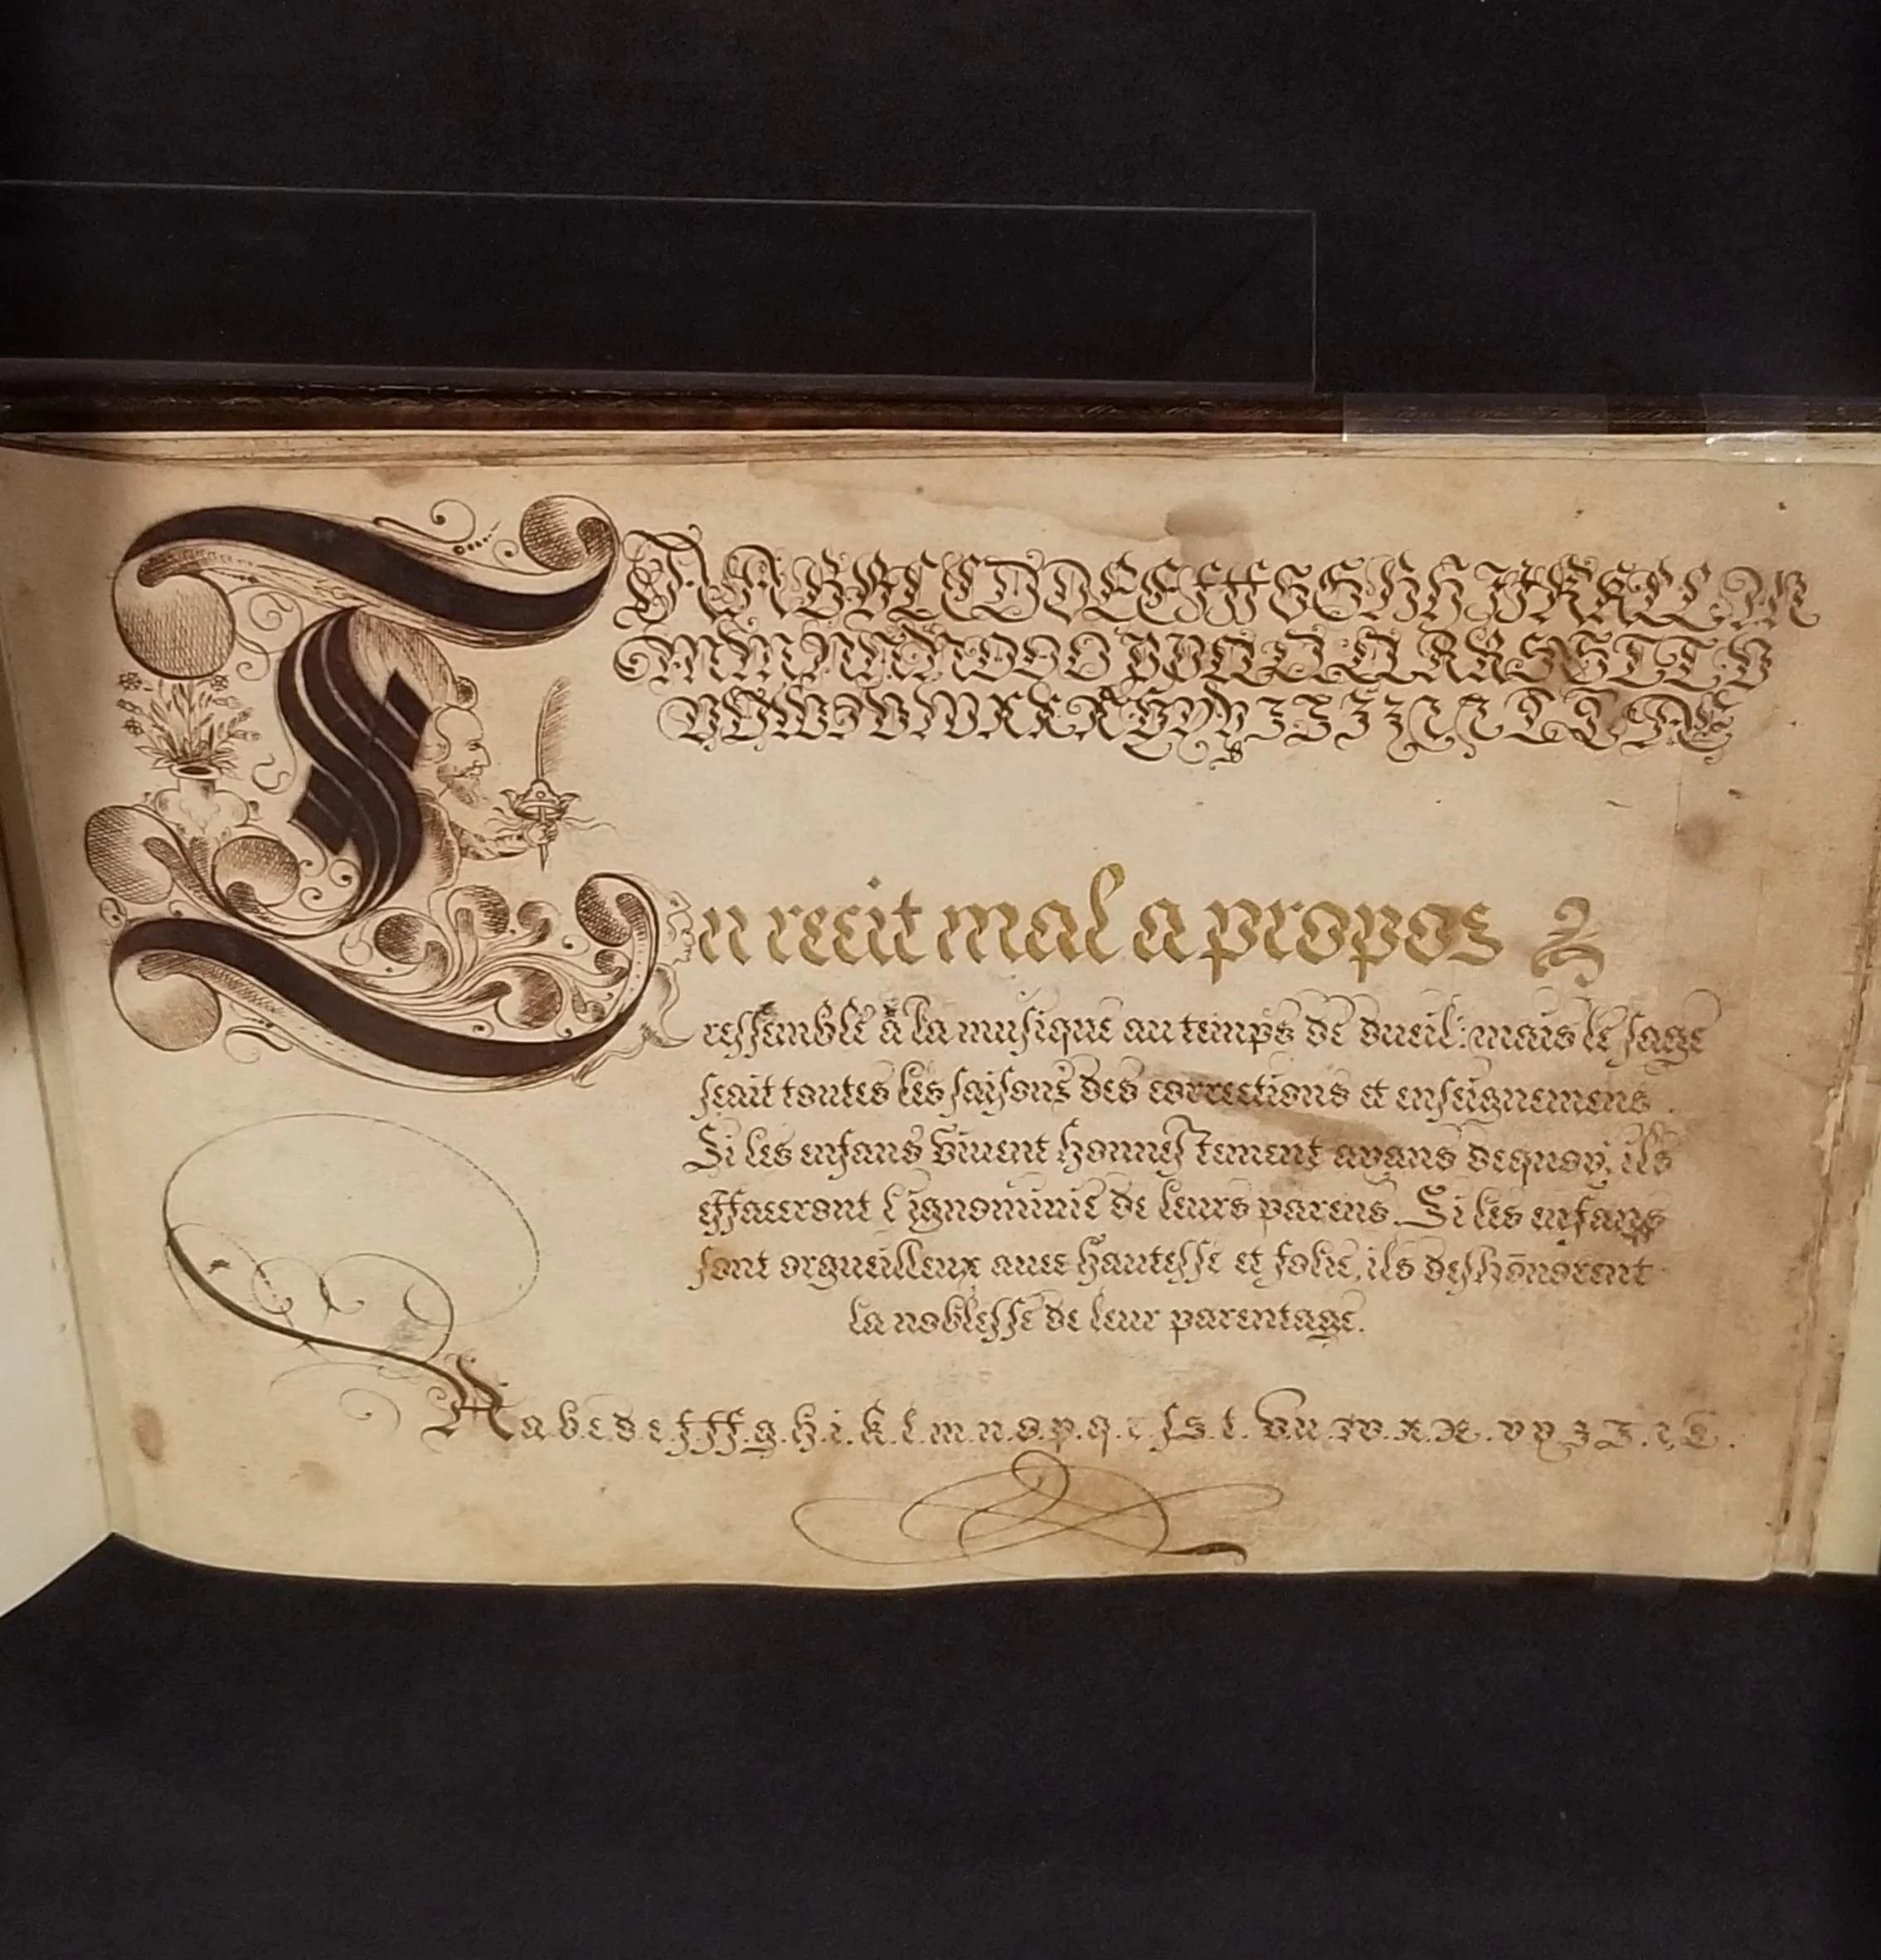 A A B B C C D D E E F ff G G H H I J K K L L M
M M N N N O O O P P Q Q Q R R S S T T V
V V W W W X X X Y Y Y Z Z Z
Un recit mal a propos
ressemble à la musique au temps de dueil: mais le sage
scait toutes les saisons des corrections et enseignemens.
Si les enfans viuent honnestement ayans dequoy, ils
effaceront l'ignominie de leurs parens. Si les enfans
sont orgueilleux auec hautesse et folie, ils deshōnorent
la noblesse de leur parentage.
A a.b.c.d.e.f.ff.g.h.i.k.l.m.n.o.p.q.r.ſ.s.t.v.u.w.x.x.y.y.z.z.